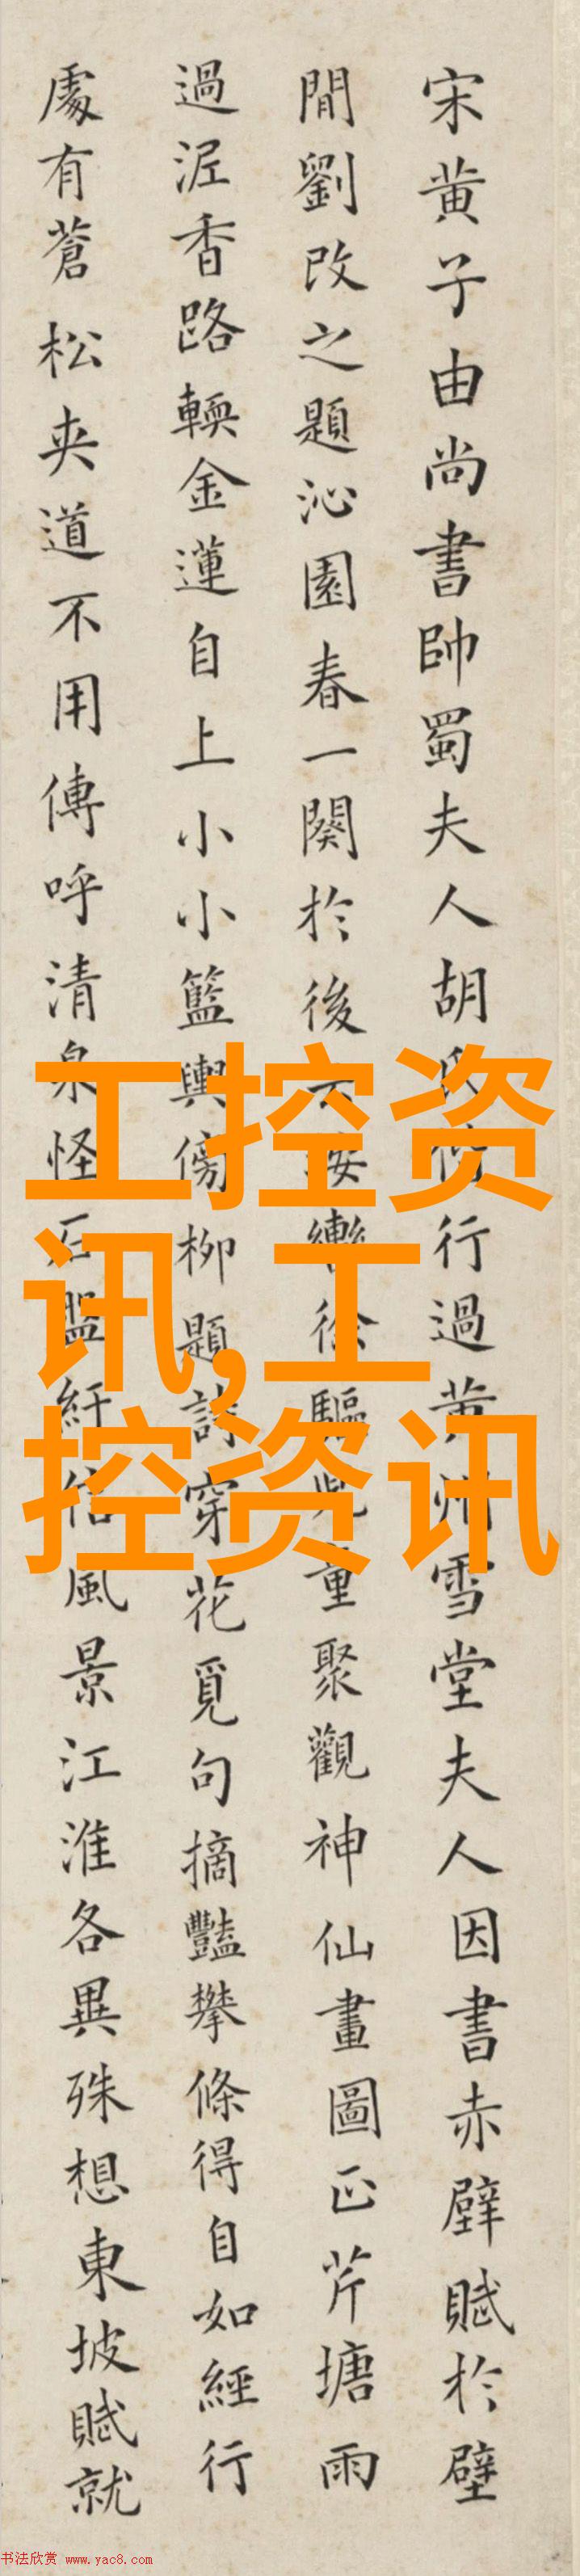 宋黄子由尚書帥蜀夫人胡氏行過黄州雪堂夫人因書赤壁賦於壁
間劉改之題沁園春一闋於後云按轡徐驅兒童聚觀神仙畫圖正芹塘雨
過泥香路輭金蓮自上小小籃輿傍柳題詩穿花覓句摘豔攀條得自如經行
處有蒼松夾道不用傳呼清泉怪石盤紆信風景江淮各異殊想東坡賦就
工控资
讯,工
控资讯
书法欣赏 www.yac8.com